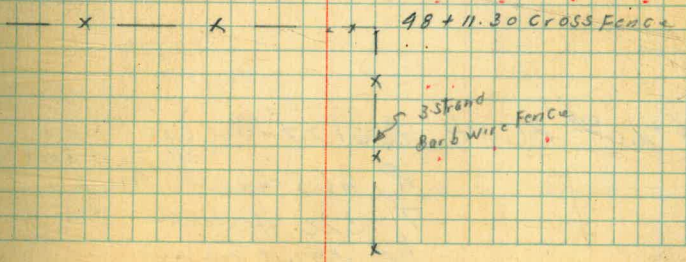 48 + 11.30 Cross Fence
3 Strand
Barb wire Fence